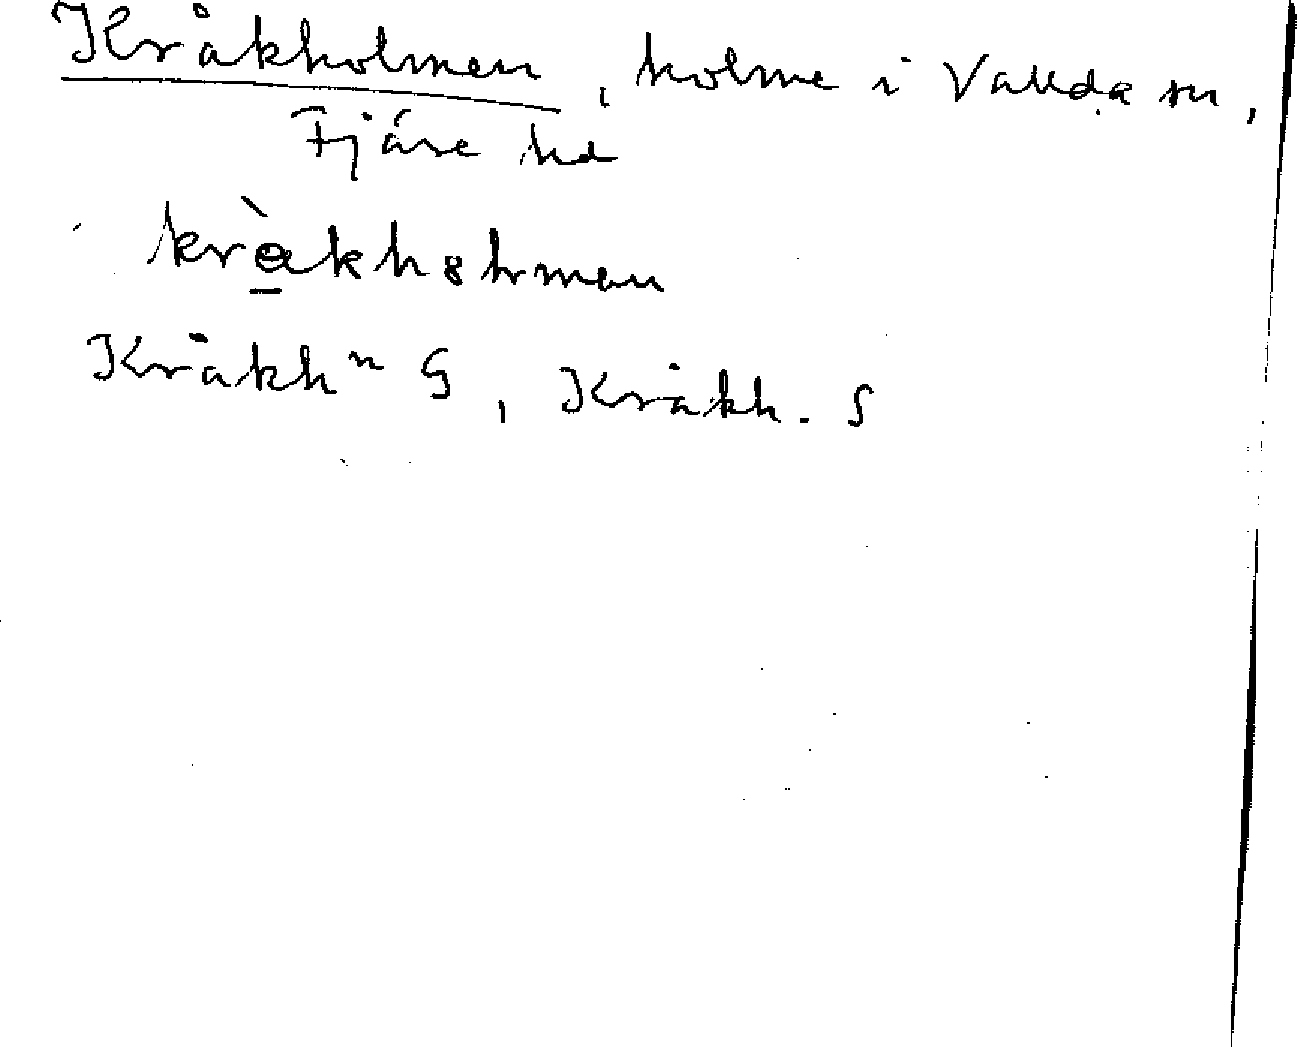 Kråkholmen, holme i Vallda sn,
Fjäre hd
Kråkhⁿ G, Kråkh. S